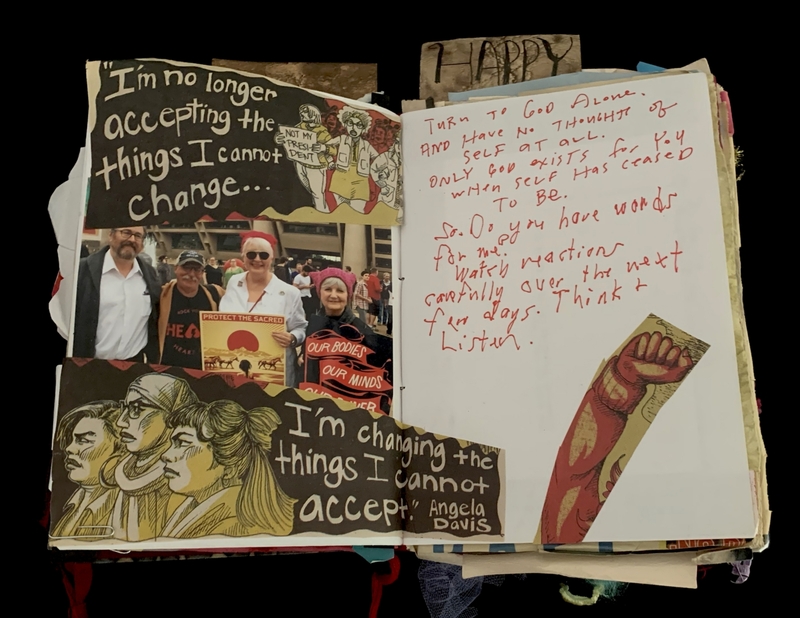 "I'm no longer
accepting the
things I cannot
change...
NOT MY
PRESI
DENT
HEA
PROTECT THE SACRED
OUR BODIES
OUR MINDS
OUR POWER
I'm changing the
things I cannot
accept." Angela
Davis
HAPPY
TURN TO GOD ALONE.
AND HAVE NO THOUGHTS OF
SELF AT ALL.
ONLY GOD EXISTS FOR YOU
WHEN SELF HAS CEASED
TO BE.
So. Do you have words
for me.
Watch reactions
carefully over the next
few days. Think &
Listen.